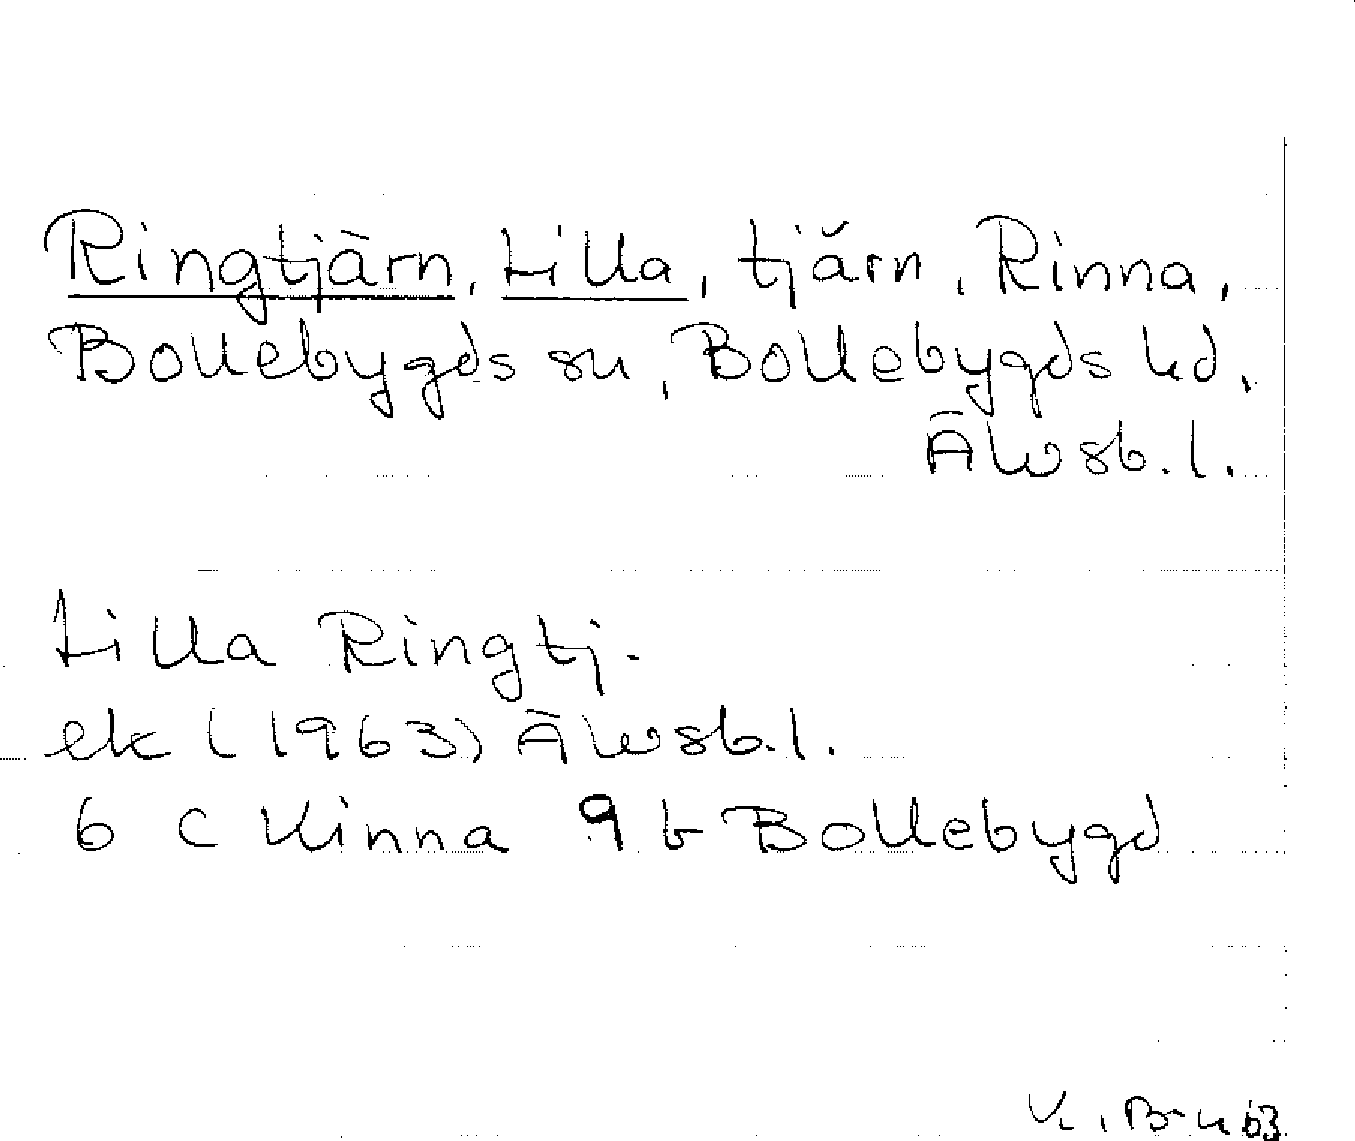 Ringtjärn, Lilla, tjärn, Rinna,
Bollebygds sn, Bollebygds hd,
Älvsb. l.
Lilla Ringtj.
ek (1963) Älvsb. l.
6 C Kinna 9 b Bollebygd
63